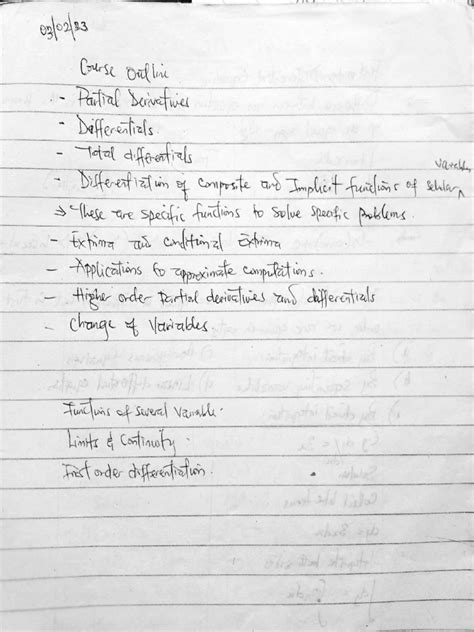 03/02/23
Course Outline
- Partial Derivatives
- Differentials.
- Total differentials
variables
- Differentiation of composite and Implicit functions of
→ These are specific functions to solve specific problems.
- Extrima and conditional Extrima
- Applications to approximate computations.
- Higher order Partial derivatives and differentials
- Change of Variables.
Functions of Several Variable.
Limits & Continuity.
First order differentiation.